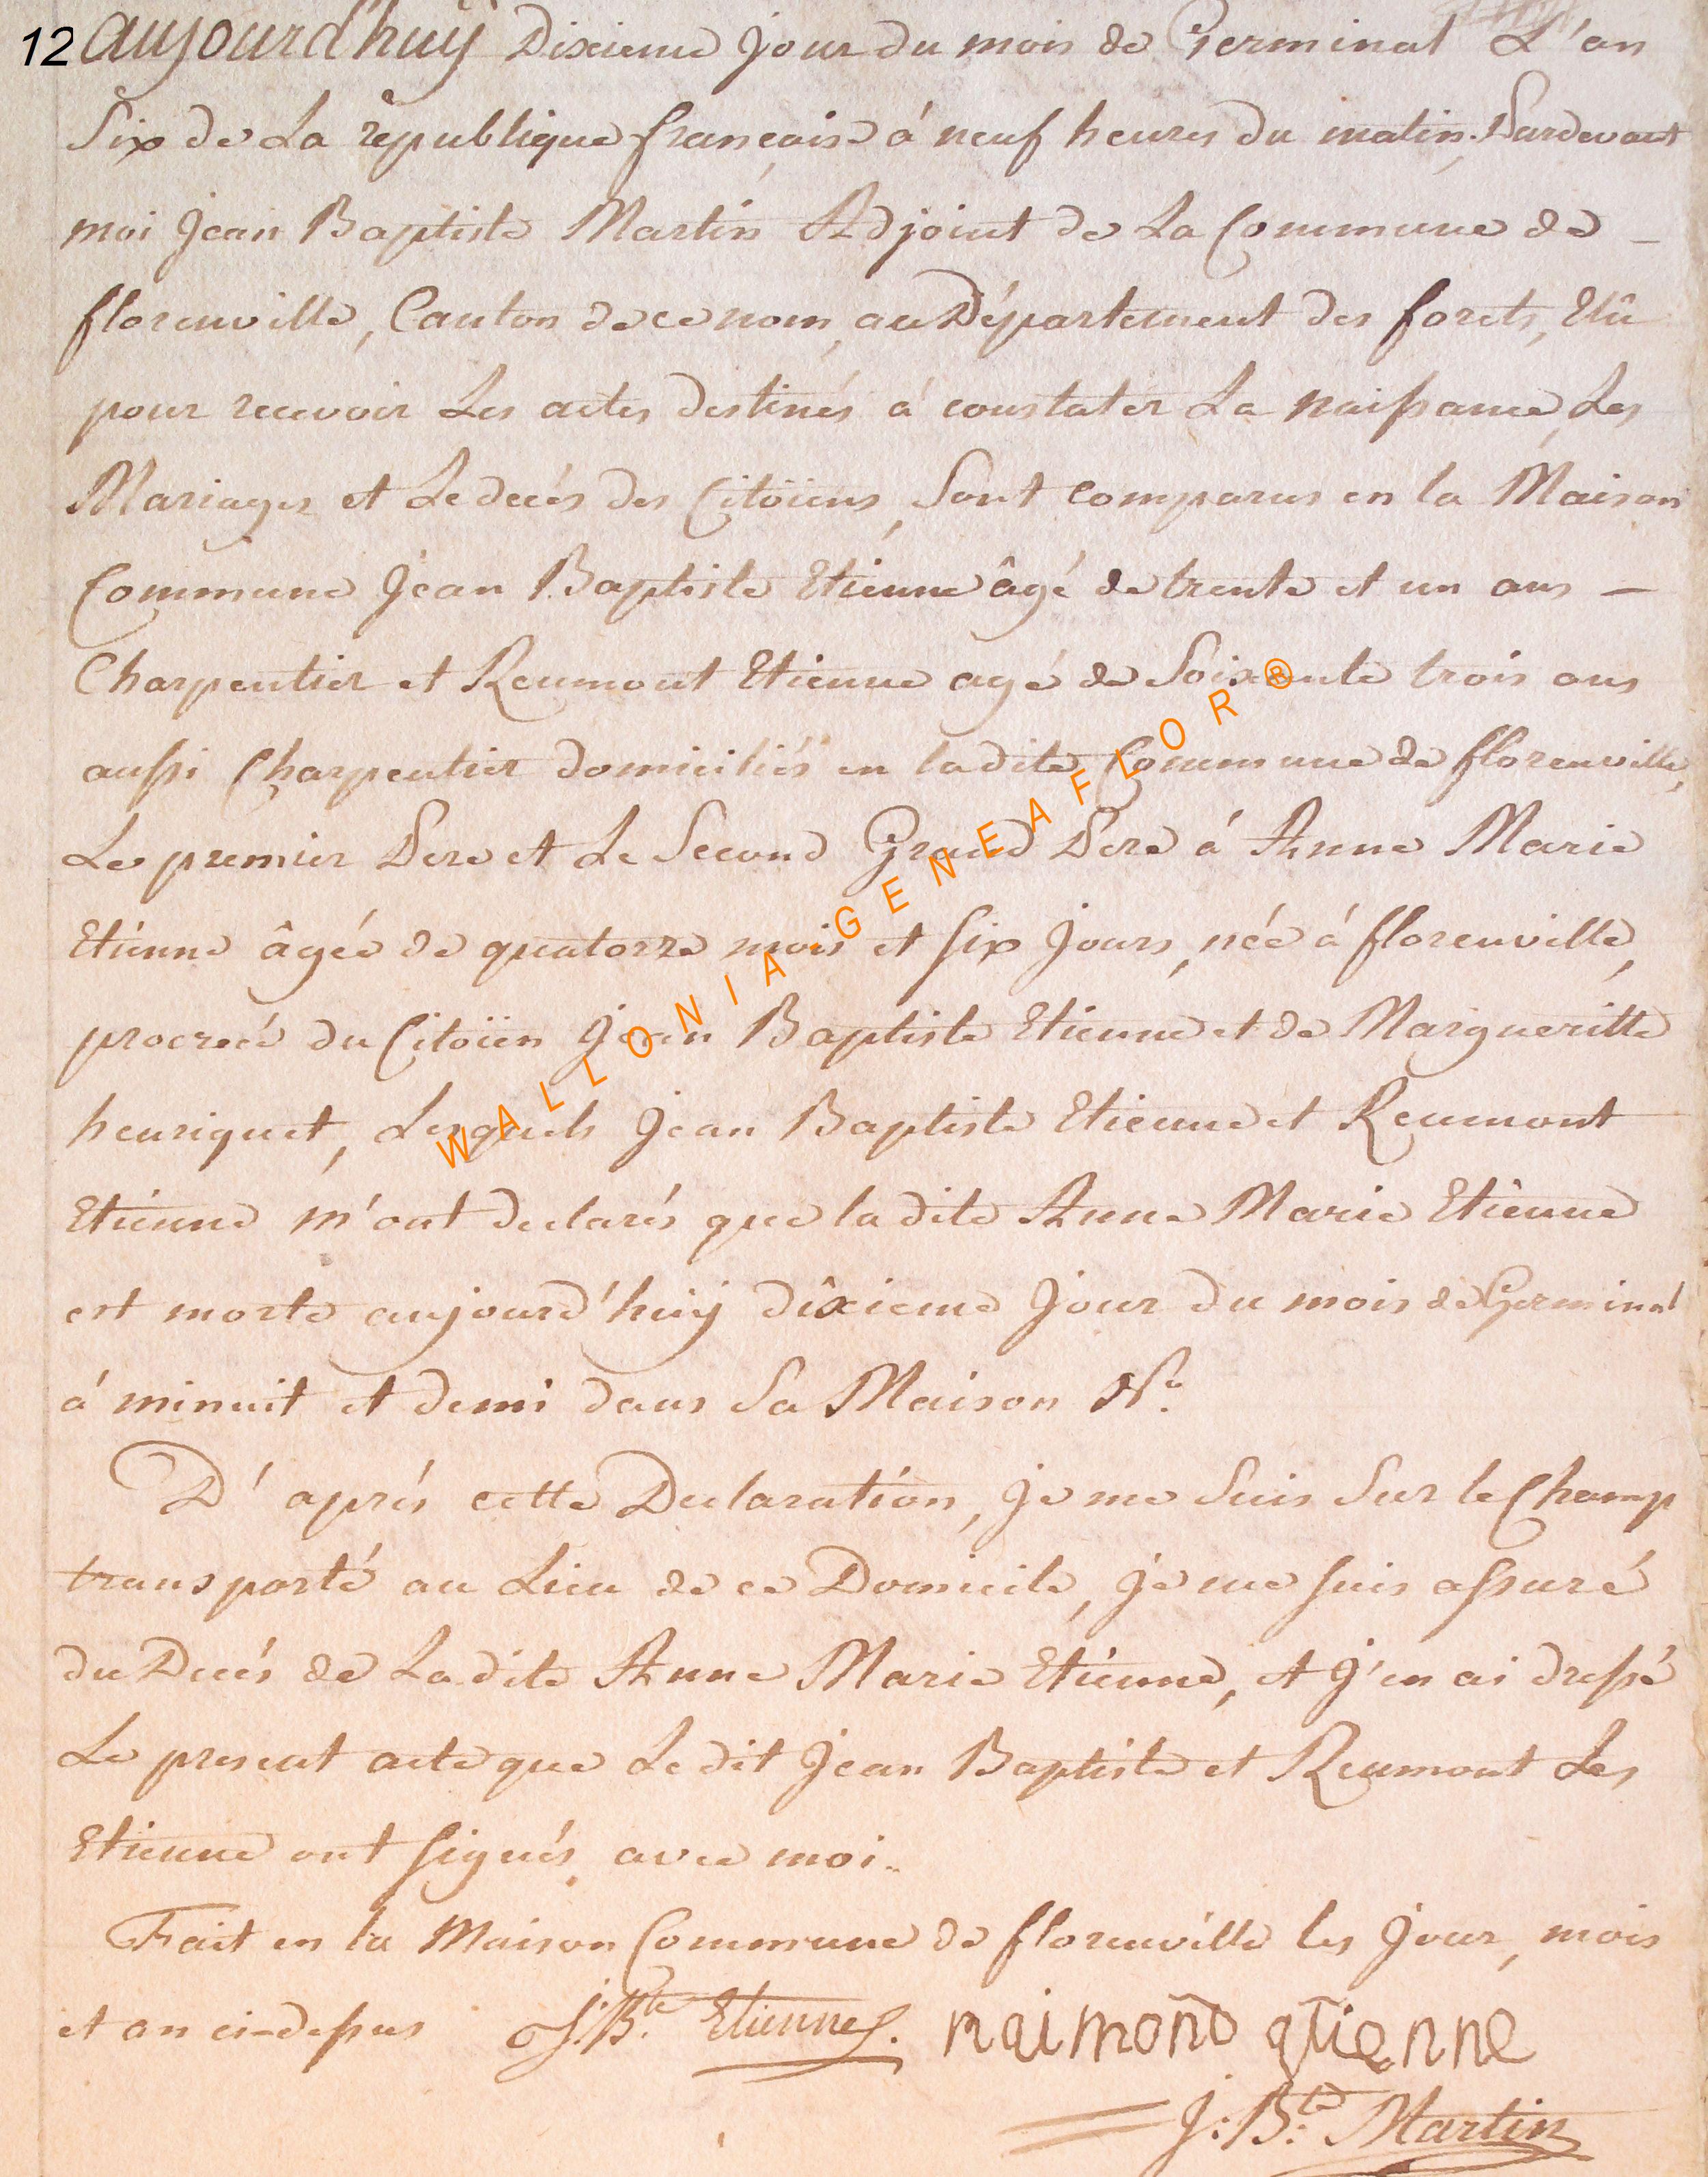 12 aujourd'huÿ Dixieme jour du mois de Germinal L'an
Six de La republique française á neuf heures du matin, Pardevant
moi Jean Baptiste Martin Adjoint de La Commune de -
florenville, Canton de ce nom, au Département des forets, Elû
pour recevoir Les actes destinés á constater La naissance, Les
Mariages et Le decés des Citoïens, Sont comparus en la Maison
Commune Jean Baptiste Etienne âgé de trente et un ans -
Charpentier et Reumont Etienne agé de Soixante trois ans
aussi Charpentier domiciliés en ladite Commune de florenville,
Le premier Pere et Le Second Grand Pere á Anne Marie
Etienne âgée de quatorze mois et six Jours, née á florenville,
procreé du Citoïen Jean Baptiste Etienne et de Margueritte
henriquet, Lesquels Jean Baptiste Etienne et Reumont
Etienne m'ont declarés que ladite Anne Marie Etienne
est morte aujourd'huÿ dixieme Jour du mois de Germinal
á minuit et demi dans Sa Maison N.°
D'aprés cette Declaration, Je me Suis Sur le Champ
transporté au Lieu de ce Domicile, je me suis assuré
du Decés de Ladite Anne Marie Etienne, et J'en ai dressé
Le present acte que Le dit Jean Baptiste et Reumont Les
Etienne ont signés avec moi.
Fait en la Maison Commune de florenville les Jour, mois
et an ci-dessus J. B.te Etienne. raimond etienne
J: B.te Martin
WALLONIA-GENEAFLOR®